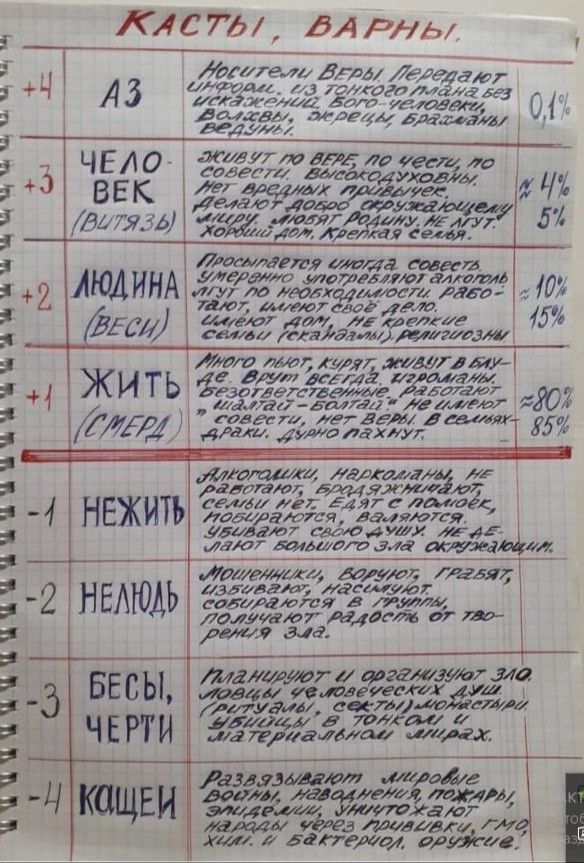 КАСТЫ, ВАРНЫ.
+4
АЗ
Носители Веры. Передают
информ. из тонкого плана без
искажений. Бого-человеки,
Волхвы, Жрецы, Брахманы
ведуны.
0,1%
+3
ЧЕЛО-
ВЕК
(ВИТЯЗЬ)
живут по ВЕРЕ, по чести, по
совести. Высокодуховны.
Нет вредных привычек.
Делают добро окружающему
миру. Любят Родину. Не лгут.
Хороший дом. Крепкая семья.
≈ 4%
5%
+2
ЛЮДИНА
(ВЕСИ)
Просыпается иногда совесть
умеренно употребляют алкоголь
лгут по необходимости. Рабо-
тают, имеют своё дело.
Имеют дом, не крепкие
семьи (скандалы), религиозны
≈10%
15%
+1
ЖИТЬ
(СМЕРД)
Много пьют, курят, живут в блу-
де. Врут всегда. игроманы.
Безответственные. Работают
"шалтай-болтай." Не имеют
совести, нет Веры. В семьях-
драки. Дурно пахнут.
≈80%
85%
-1
НЕЖИТЬ
Алкоголики, наркоманы, не
работают, бродяжничают,
семьи нет. Едят с помоек,
побираются, валяются.
Убивают свою душу. Не де-
лают большого зла окружающим.
-2
НЕЛЮДЬ
Мошенники, воруют, грабят,
избивают, насилуют.
собираются в группы,
получают радость от тво-
рения зла.
-3
БЕСЫ,
ЧЕРТИ
Планируют и организуют зло.
Ловцы человеческих душ.
(ритуалы, секты) монастыри.
Убийцы в тонком и
материальном мирах.
-4
КОЩЕИ
Развязывают мировые
войны, наводнения, пожары,
эпидемии, уничтожают
народы через прививки, ГМО,
хим. и бактериол. оружие.